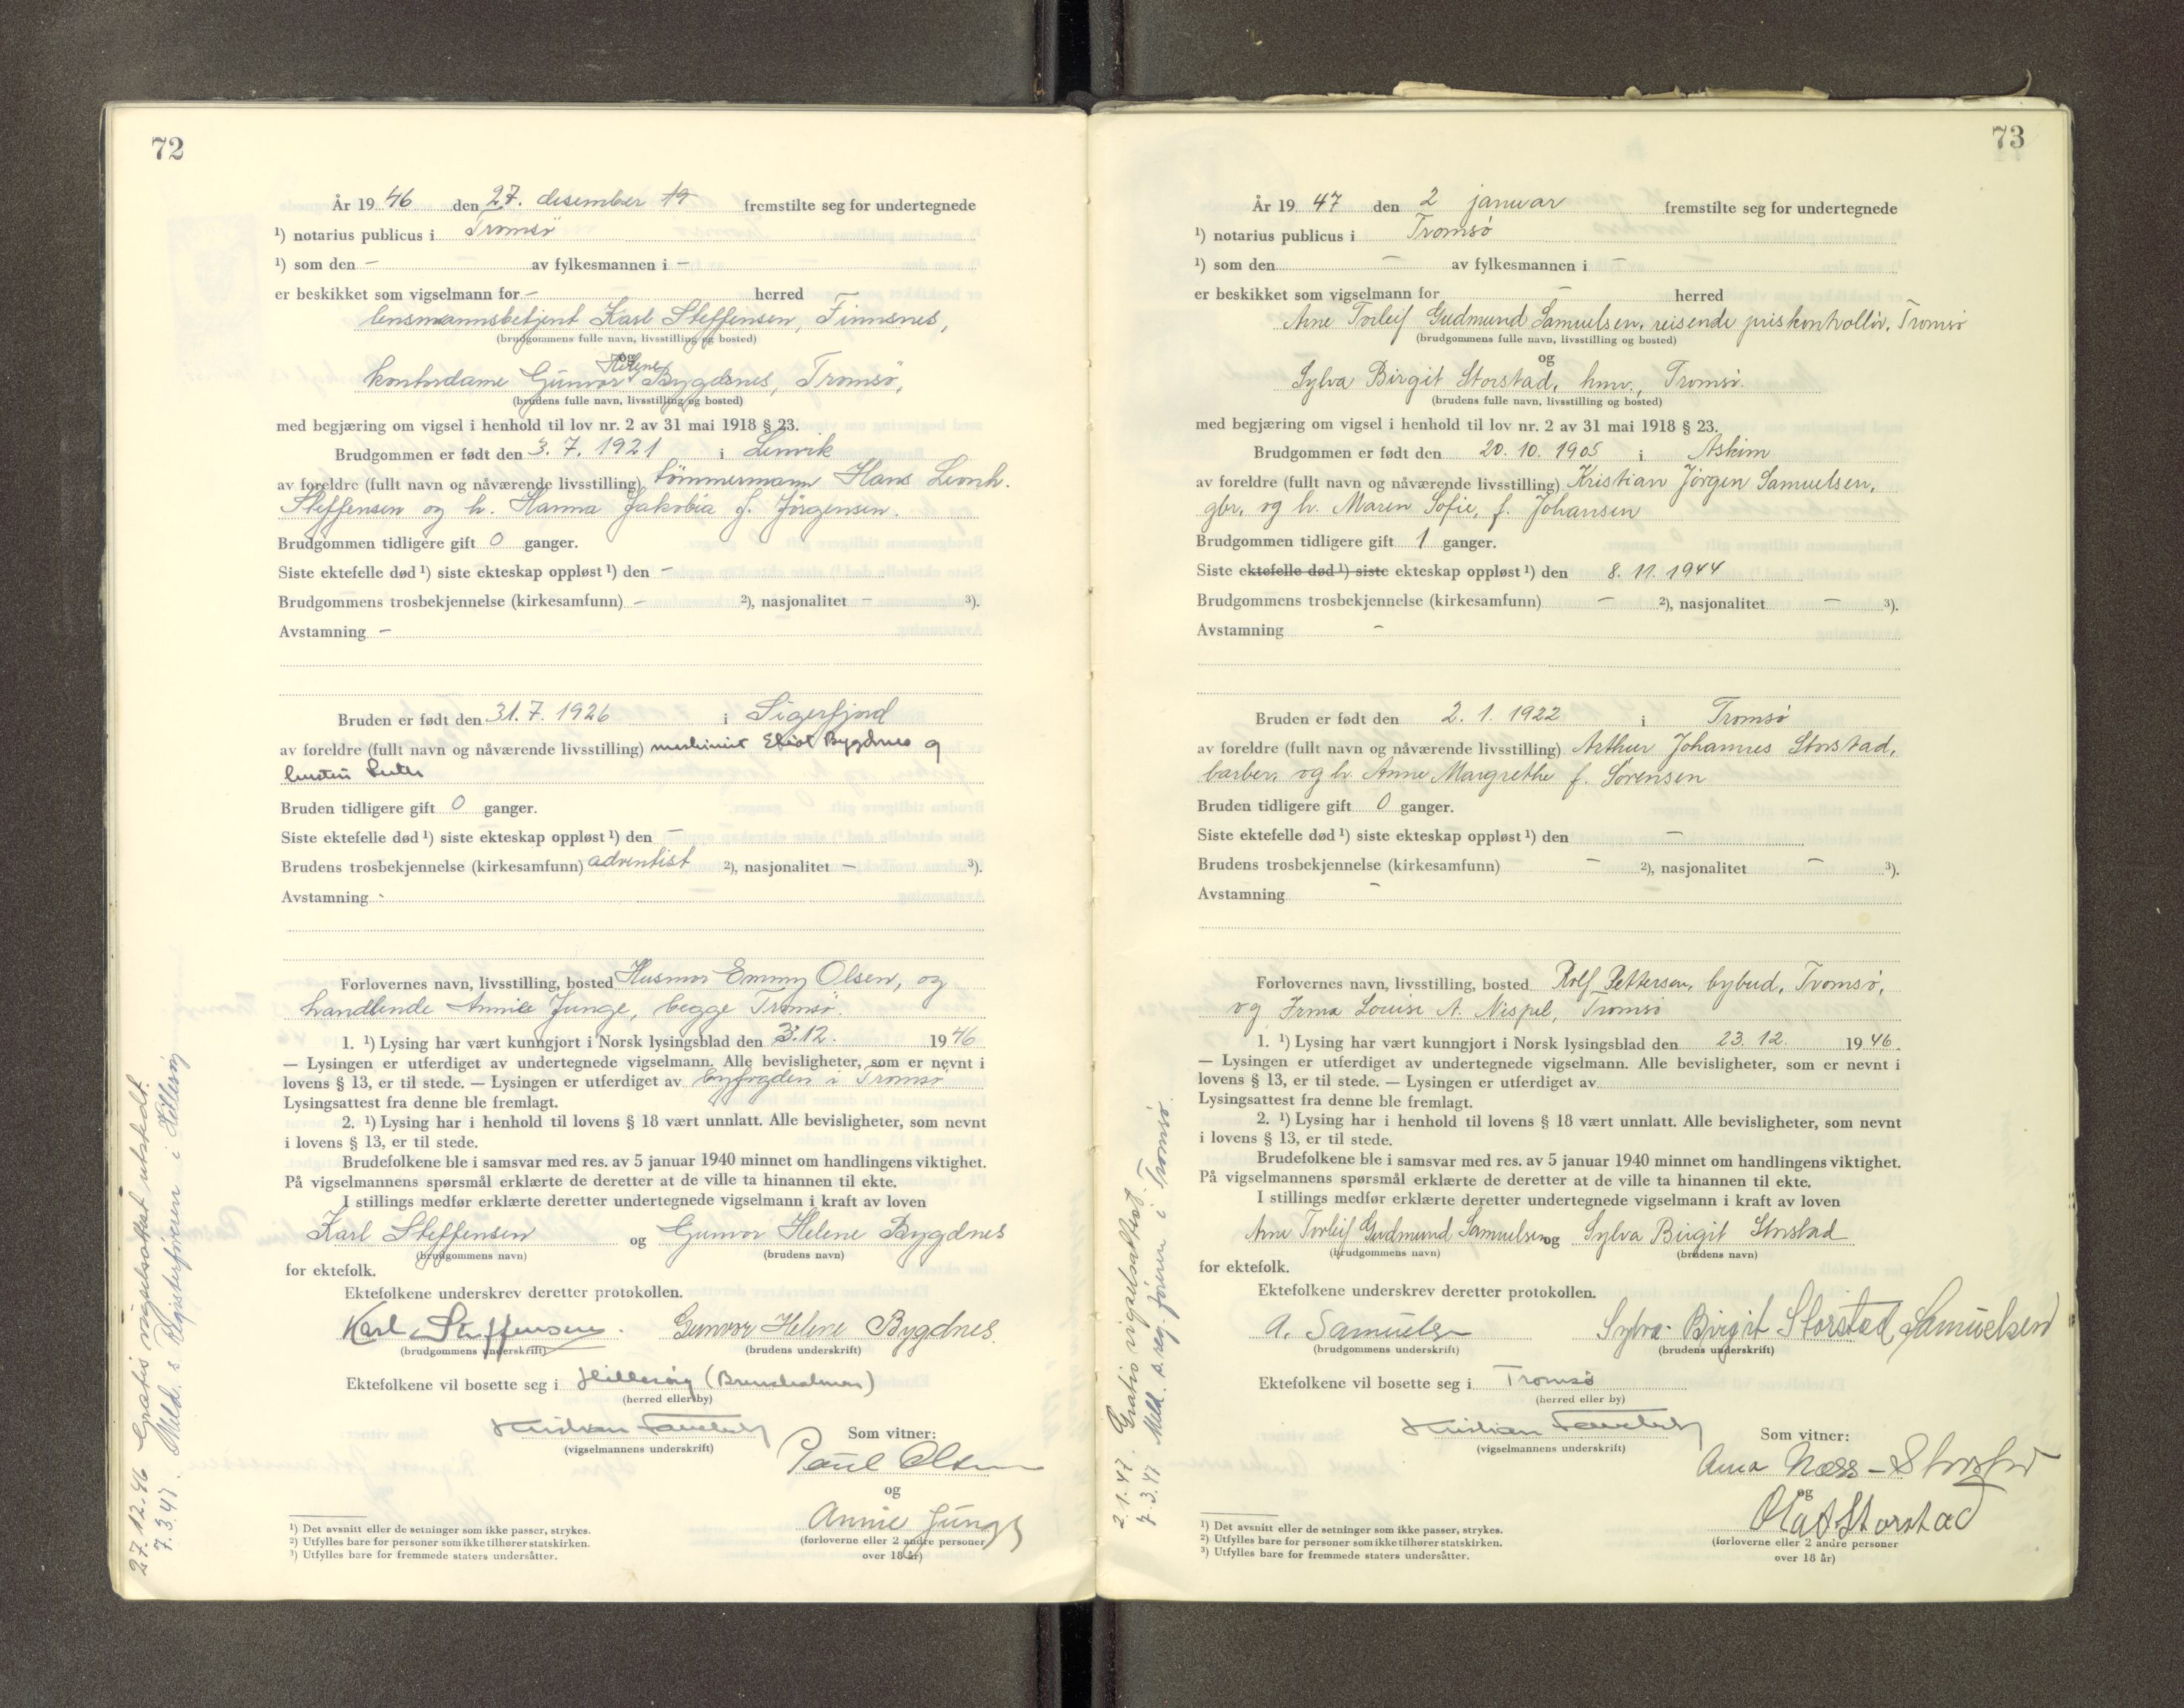 72
År 19 46 den 27. desember 19 fremstilte seg for undertegnede
¹) notarius publicus i Tromsö
¹) som den – av fylkesmannen i –
er beskikket som vigselmann for – herred
lensmannsbetjent Karl Steffensen, Finnsnes,
(brudgommens fulle navn, livsstilling og bosted)
og
kontordame Gunvor Helene Bygdnes, Tromsö,
(brudens fulle navn, livsstilling og bosted)
med begjæring om vigsel i henhold til lov nr. 2 av 31 mai 1918 § 23.
Brudgommen er født den 3. 7. 1921 i Lenvik
av foreldre (fullt navn og nåværende livsstilling) tömmermann Hans Leonh.
Steffensen og h. Hanna Jakobia f. Jörgensen.
Brudgommen tidligere gift 0 ganger.
Siste ektefelle død ¹) siste ekteskap oppløst ¹) den –
Brudgommens trosbekjennelse (kirkesamfunn) – ²), nasjonalitet – ³).
Avstamning –
Bruden er født den 31. 7. 1926 i Sigerfjord
av foreldre (fullt navn og nåværende livsstilling) maskinist Bygdnes og
hustru
Bruden tidligere gift 0 ganger.
Siste ektefelle død ¹) siste ekteskap oppløst ¹) den –
Brudens trosbekjennelse (kirkesamfunn) adventist ²), nasjonalitet – ³).
Avstamning -
Forlovernes navn, livsstilling, bosted Husmor Emmy Olsen, og
handlende Annie Junge, begge Tromsö.
1. ¹) Lysing har vært kunngjort i Norsk lysingsblad den 3.12. 19 46
— Lysingen er utferdiget av undertegnede vigselmann. Alle bevisligheter, som er nevnt i
lovens § 13, er til stede. — Lysingen er utferdiget av byfogden i Tromsö
Lysingsattest fra denne ble fremlagt.
2. ¹) Lysing har i henhold til lovens § 18 vært unnlatt. Alle bevisligheter, som nevnt
i lovens § 13, er til stede.
Brudefolkene ble i samsvar med res. av 5 januar 1940 minnet om handlingens viktighet.
På vigselmannens spørsmål erklærte de deretter at de ville ta hinannen til ekte.
I stillings medfør erklærte deretter undertegnede vigselmann i kraft av loven
Karl Steffensen og Gunvor Helene Bygdnes
(brudgommens navn) (brudens navn)
for ektefolk.
Ektefolkene underskrev deretter protokollen.
Karl Steffensen. Gunvor Helene Bygdnes.
(brudgommens underskrift) (brudens underskrift)
Ektefolkene vil bosette seg i Hillesöy (Brensholmen)
(herred eller by)
(vigselmannens underskrift) Som vitner:
Paul Olsen
og
Annie Junge
(forloverne eller 2 andre personer
over 18 år)
¹) Det avsnitt eller de setninger som ikke passer, strykes.
²) Utfylles bare for personer som ikke tilhører statskirken.
³) Utfylles bare for fremmede staters undersåtter.
27.12.46 Gratis vigselsattest utstedt.
7.3.47. Meld. t. Registerföreren i Hillesöy
73
År 19 47 den 2 januar fremstilte seg for undertegnede
¹) notarius publicus i Tromsö
¹) som den – av fylkesmannen i –
er beskikket som vigselmann for – herred
Arne Torleif Gudmund Samuelsen, reisende priskontrollör, Tromsö
(brudgommens fulle navn, livsstilling og bosted)
og
Sylva Birgit Storstad, hmv., Tromsö.
(brudens fulle navn, livsstilling og bosted)
med begjæring om vigsel i henhold til lov nr. 2 av 31 mai 1918 § 23.
Brudgommen er født den 20. 10. 1905 i Askim
av foreldre (fullt navn og nåværende livsstilling) Kristian Jörgen Samuelsen,
gbr. og h. Maren Sofie, f. Johansen
Brudgommen tidligere gift 1 ganger.
Siste ektefelle død ¹) siste ekteskap oppløst ¹) den 8. 11. 1944
Brudgommens trosbekjennelse (kirkesamfunn) – ²), nasjonalitet – ³).
Avstamning –
Bruden er født den 2. 1. 1922 i Tromsö
av foreldre (fullt navn og nåværende livsstilling) Arthur Johannes Storstad,
barber, og h. Anne Margrethe f. Sörensen
Bruden tidligere gift 0 ganger.
Siste ektefelle død ¹) siste ekteskap oppløst ¹) den –
Brudens trosbekjennelse (kirkesamfunn) – ²), nasjonalitet – ³).
Avstamning –
Forlovernes navn, livsstilling, bosted Rolf Pettersen, bybud, Tromsö,
og Irma Louise A. Nispel, Tromsö
1. ¹) Lysing har vært kunngjort i Norsk lysingsblad den 23. 12. 19 46.
— Lysingen er utferdiget av undertegnede vigselmann. Alle bevisligheter, som er nevnt i
lovens § 13, er til stede. — Lysingen er utferdiget av
Lysingsattest fra denne ble fremlagt.
2. ¹) Lysing har i henhold til lovens § 18 vært unnlatt. Alle bevisligheter, som nevnt
i lovens § 13, er til stede.
Brudefolkene ble i samsvar med res. av 5 januar 1940 minnet om handlingens viktighet.
På vigselmannens spørsmål erklærte de deretter at de ville ta hinannen til ekte.
I stillings medfør erklærte deretter undertegnede vigselmann i kraft av loven
Arne Torleif Gudmund Samuelsen og Sylva Birgit Storstad
(brudgommens navn) (brudens navn)
for ektefolk.
Ektefolkene underskrev deretter protokollen.
A. Samuelsen Sylva Birgit Storstad Samuelsen
(brudgommens underskrift) (brudens underskrift)
Ektefolkene vil bosette seg i Tromsö
(herred eller by)
(vigselmannens underskrift) Som vitner:
Anna Næss - Storstad
og
Olaf Storstad
(forloverne eller 2 andre personer
over 18 år)
¹) Det avsnitt eller de setninger som ikke passer, strykes.
²) Utfylles bare for personer som ikke tilhører statskirken.
³) Utfylles bare for fremmede staters undersåtter.
2.1.47. Gratis vigselsattest.
7.3.47 Meld. t. reg. föreren i Tromsö.